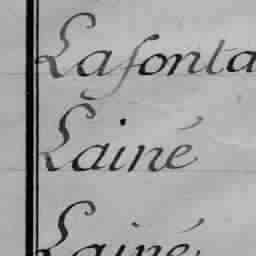 Lafonta
Lainé
Lainé